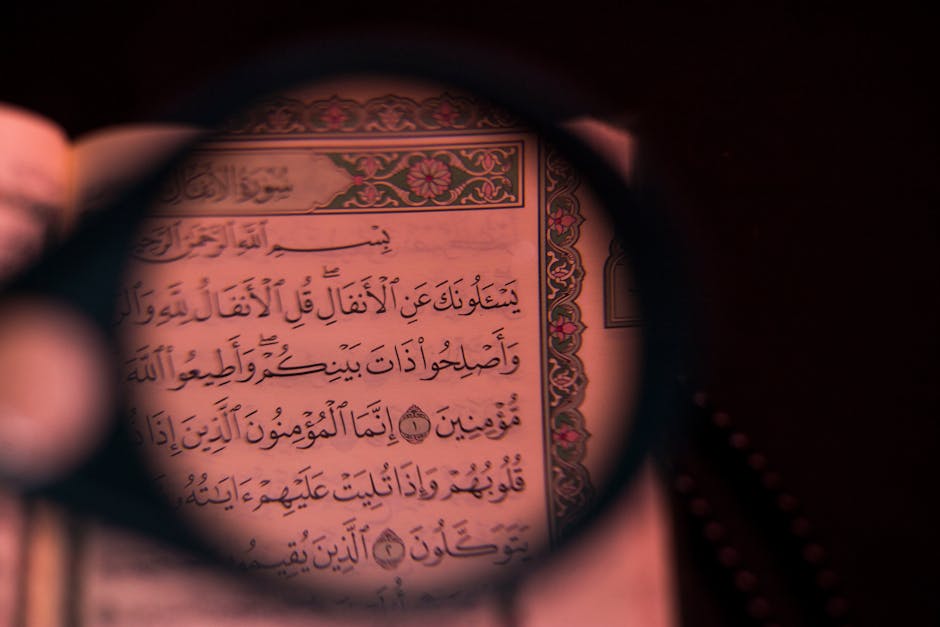 سُورَةُ الأَنفَالِ
بِسْمِ ٱللَّهِ ٱلرَّحْمَٰنِ ٱلرَّحِيمِ
يَسْـَٔلُونَكَ عَنِ ٱلْأَنفَالِۖ قُلِ ٱلْأَنفَالُ لِلَّهِ
وَأَصْلِحُوا۟ ذَاتَ بَيْنِكُمْۖ وَأَطِيعُوا۟ ٱللَّهَ
مُّؤْمِنِينَ ١ إِنَّمَا ٱلْمُؤْمِنُونَ ٱلَّذِينَ إِذَا
قُلُوبُهُمْ وَإِذَا تُلِيَتْ عَلَيْهِمْ ءَايَٰتُهُۥ
يَتَوَكَّلُونَ ٢ ٱلَّذِينَ يُقِيمُو